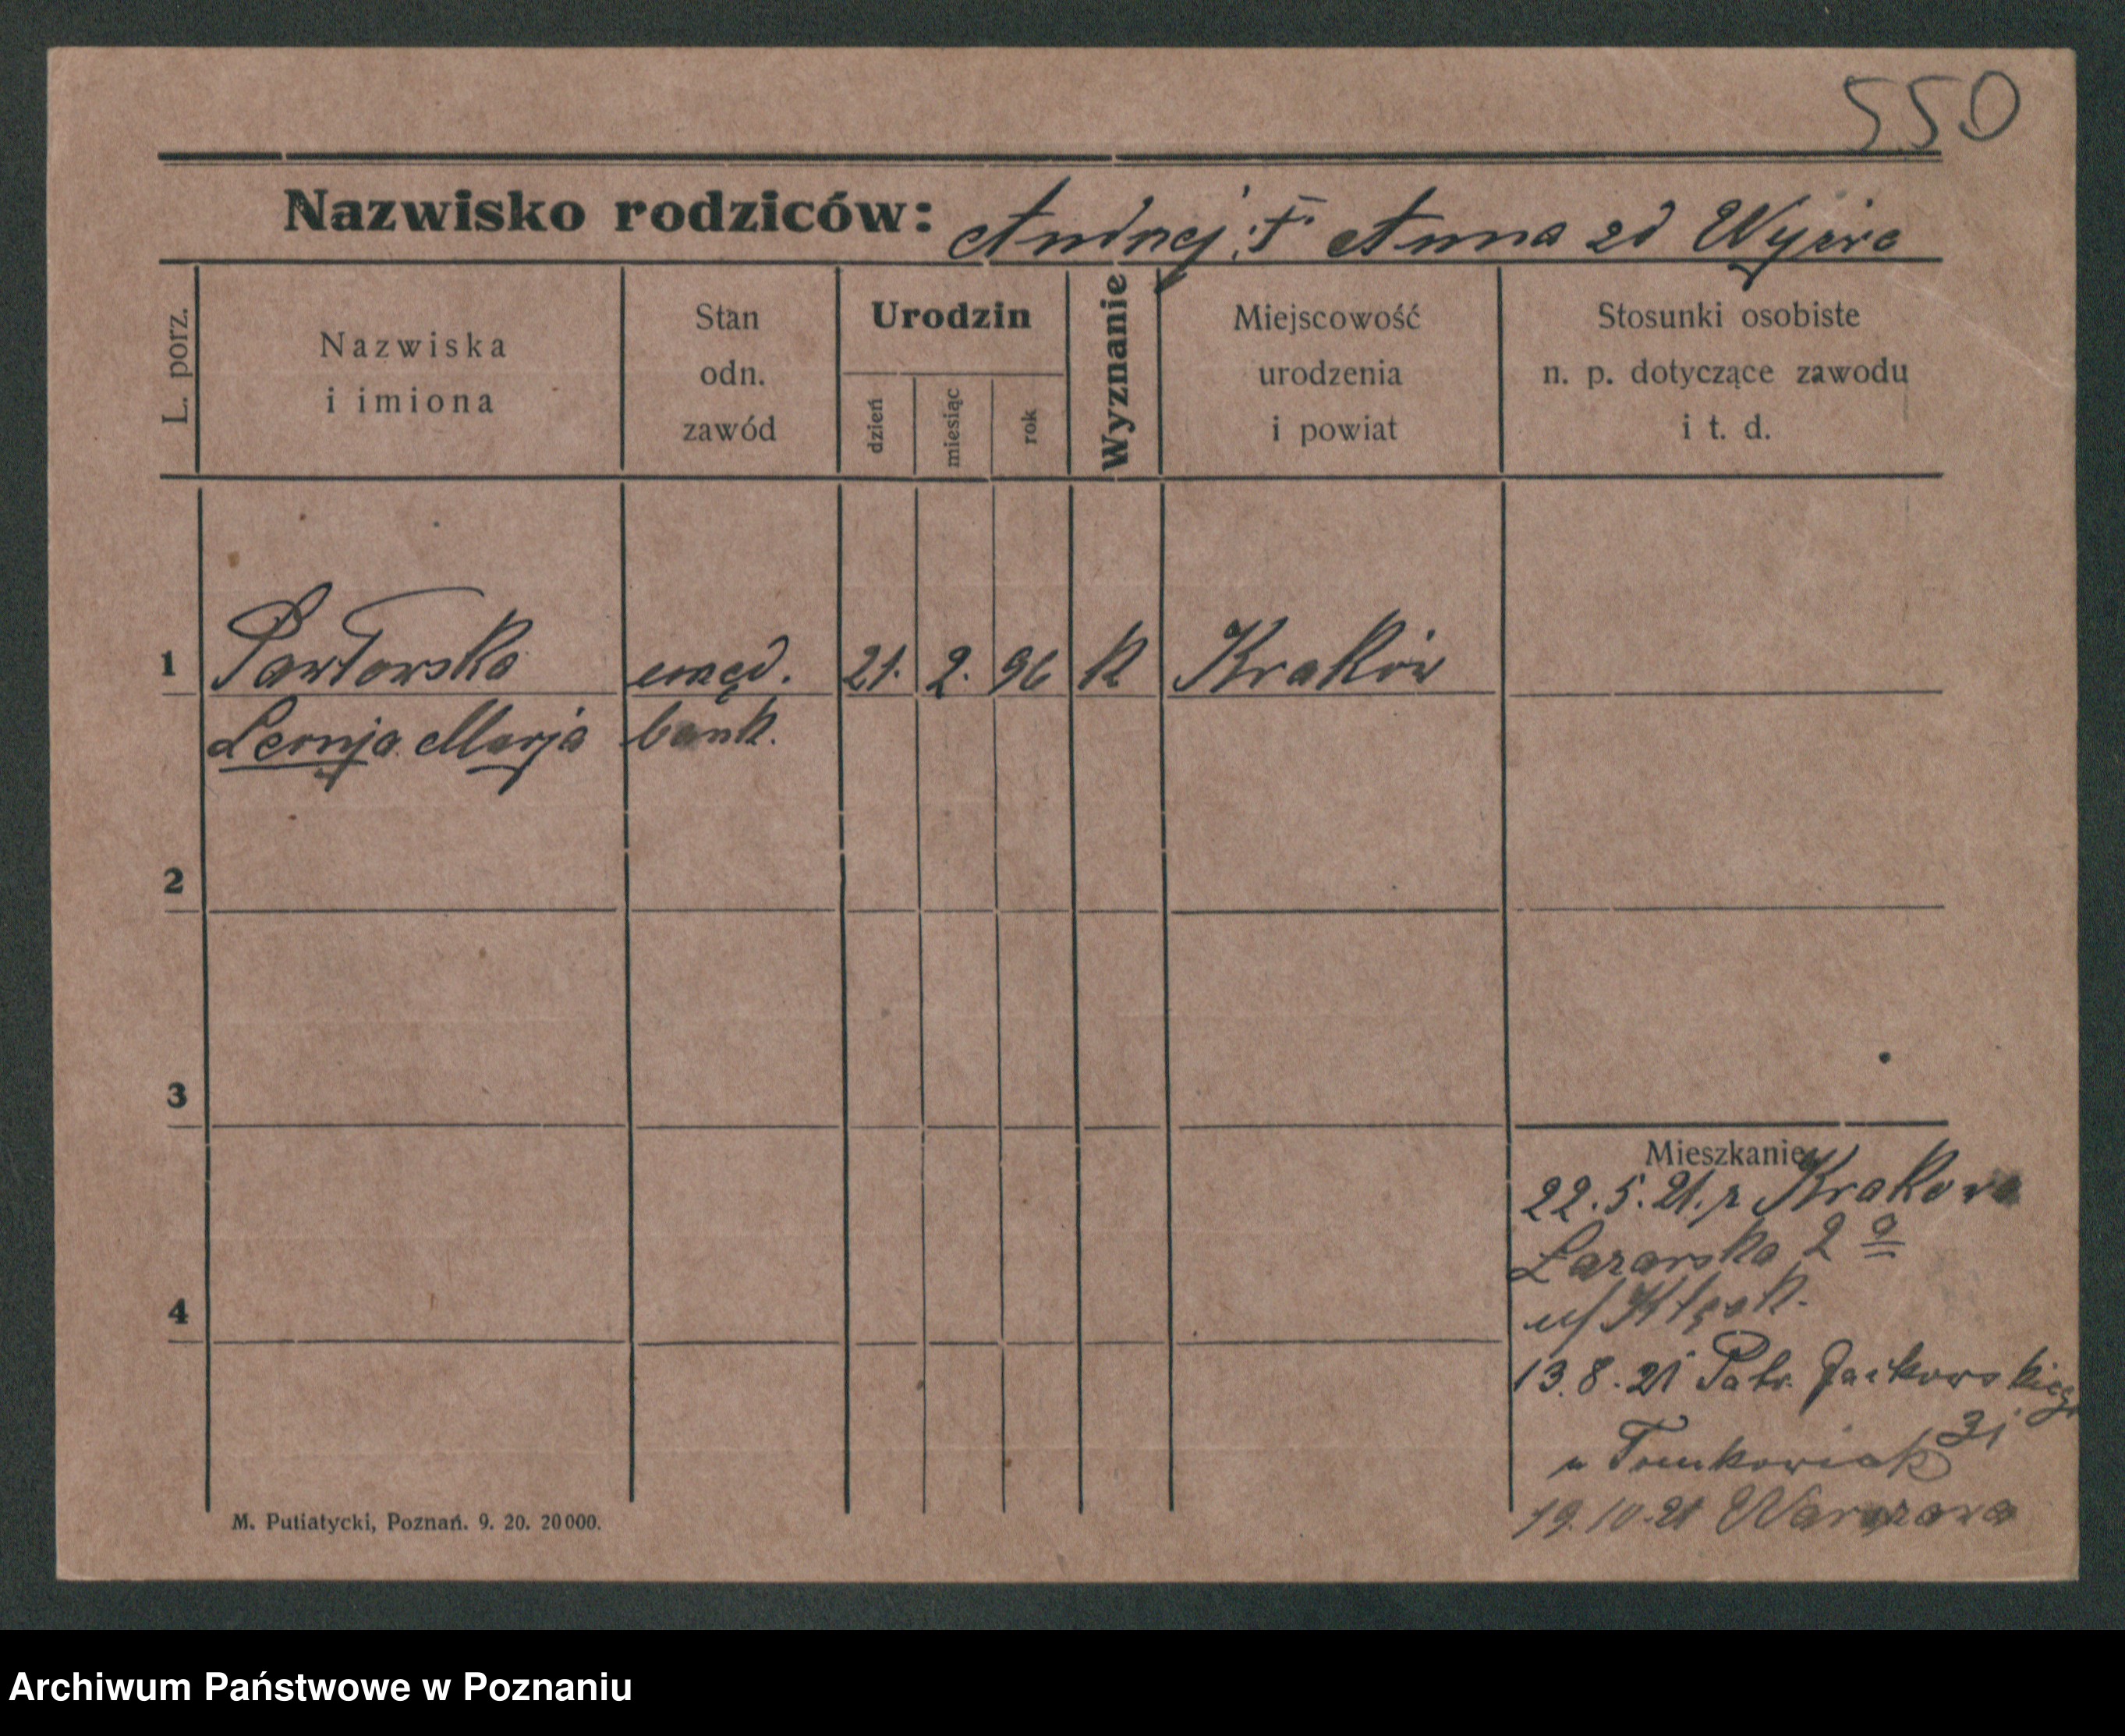 550
Nazwisko rodziców: Andrzej i Anna zd
L. porz.
Nazwiska
i imiona
Stan
odn.
zawód
Urodzin
dzień
miesiąc
rok
Wyznanie
Miejscowość
urodzenia
i powiat
Stosunki osobiste
n. p. dotyczące zawodu
i t. d.
1 Pawłowska urzęd. 21. 2. 96 k Kraków
Marja bank.
2
3
4
Mieszkanie
22.5.21. z Krakowa
Łazarska 2 a
u/
13.8.21 Patr. Jackowskiego
31
u Tomkowiak
19.10.21 Warszawa
M. Putiatycki, Poznań. 9. 20. 20000.
Archiwum Państwowe w Poznaniu